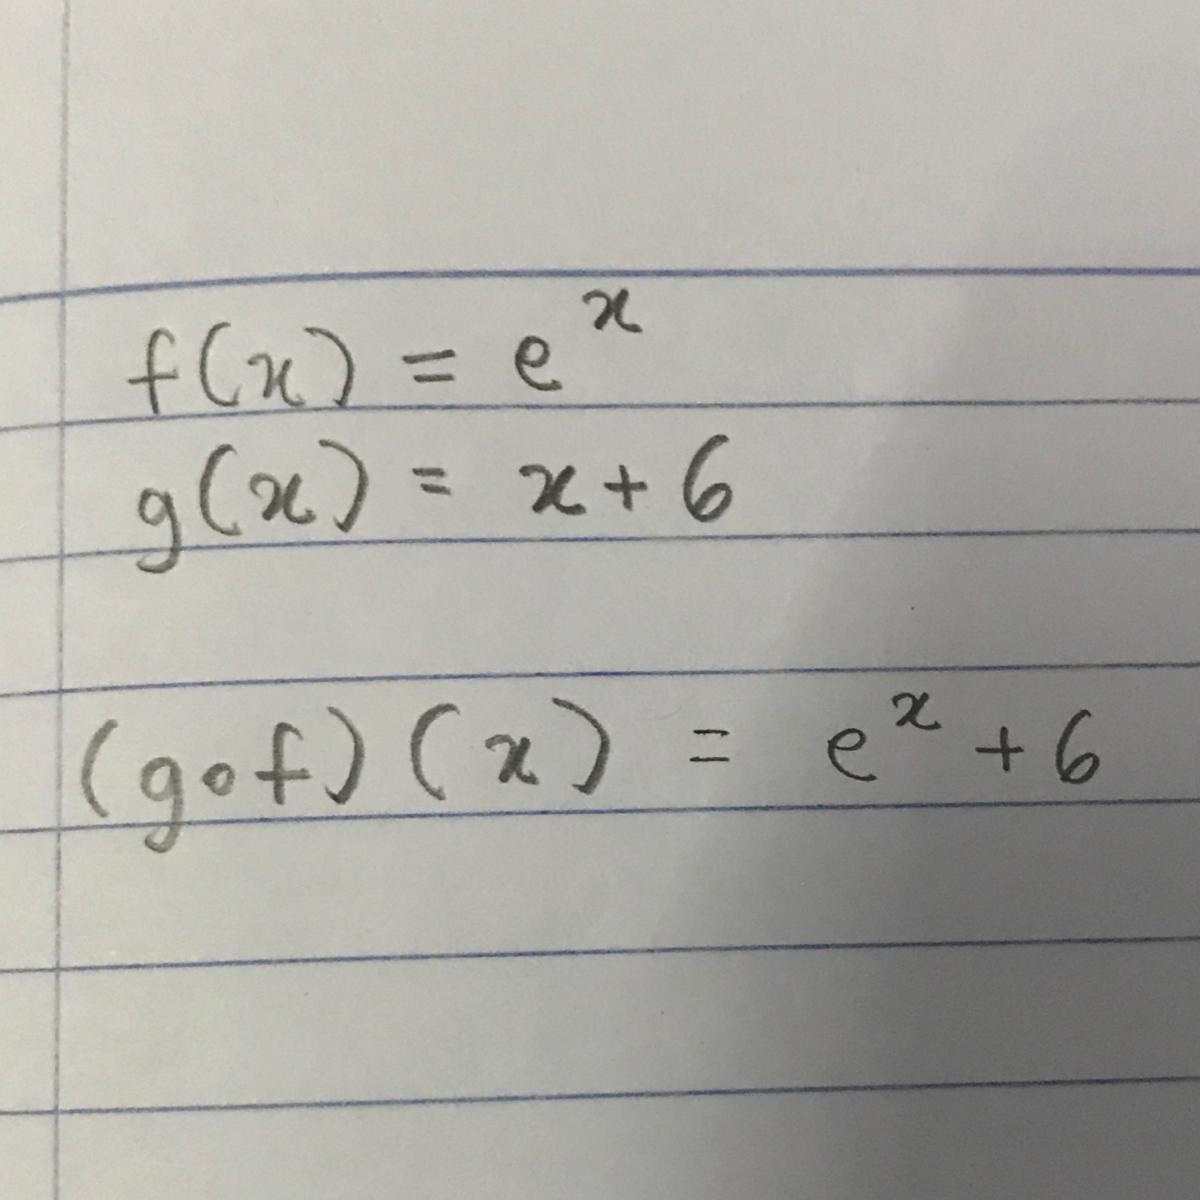 f(x) = e^x
g(x) = x + 6
(g∘f)(x) = e^x + 6